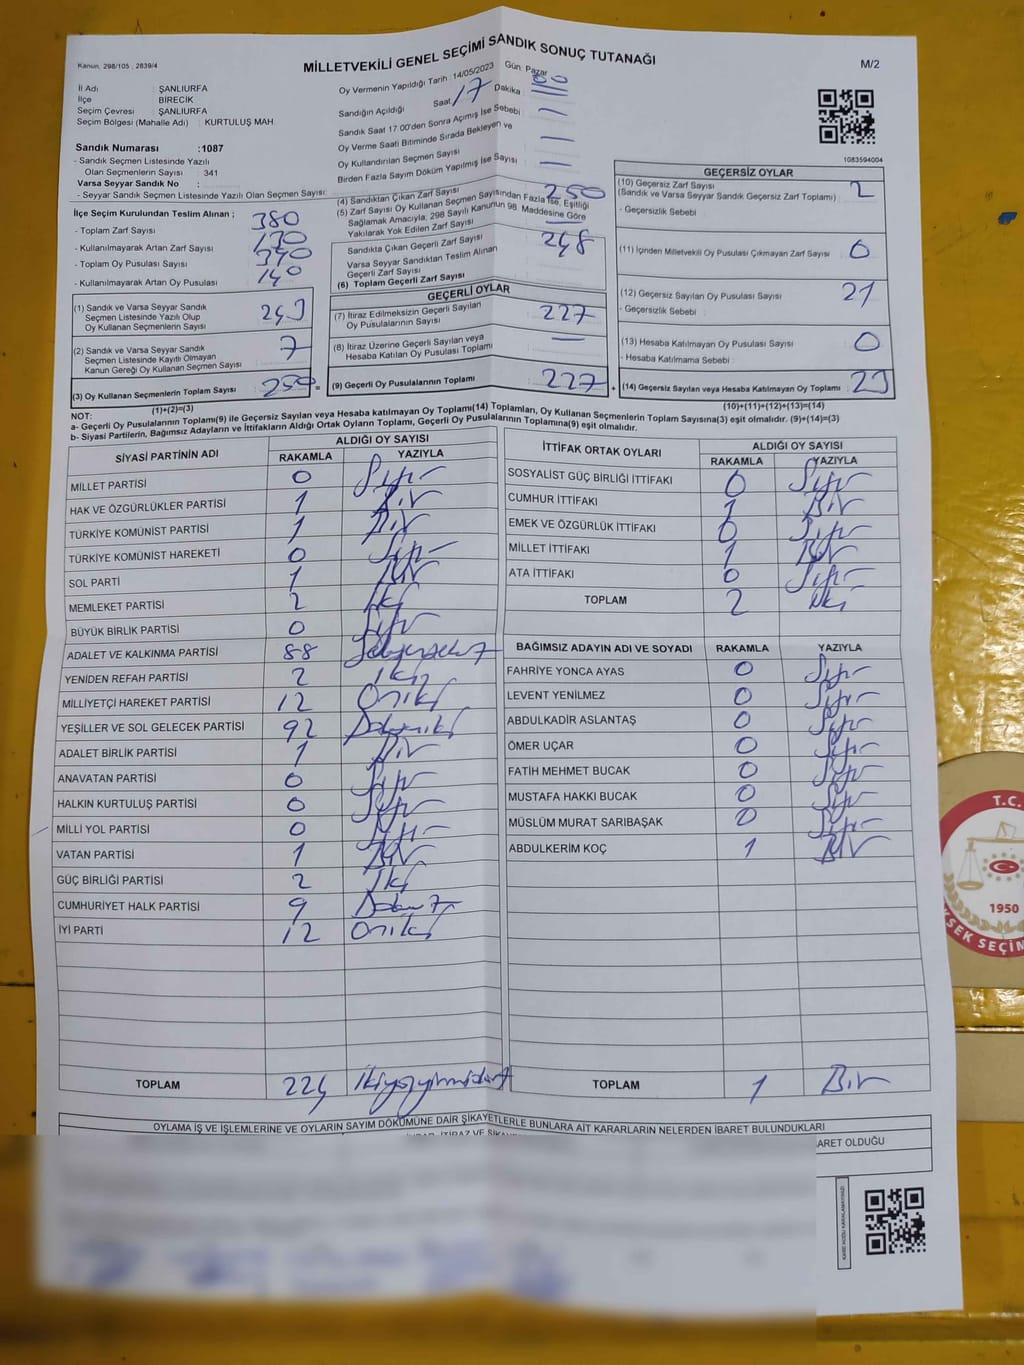 Kanun, 298/105 , 2839/4
MİLLETVEKİLİ GENEL SEÇİMİ SANDIK SONUÇ TUTANAĞI
M/2
İl Adı : ŞANLIURFA
İlçe : BİRECİK
Seçim Çevresi : ŞANLIURFA
Seçim Bölgesi (Mahalle Adı) : KURTULUŞ MAH.
Sandık Numarası :1087
- Sandık Seçmen Listesinde Yazılı
Olan Seçmenlerin Sayısı : 341
Varsa Seyyar Sandık No :
- Seyyar Sandık Seçmen Listesinde Yazılı Olan Seçmen Sayısı :
İlçe Seçim Kurulundan Teslim Alınan ;
- Toplam Zarf Sayısı 380
- Kullanılmayarak Artan Zarf Sayısı 130
- Toplam Oy Pusulası Sayısı
- Kullanılmayarak Artan Oy Pusulası 140
(1) Sandık ve Varsa Seyyar Sandık
Seçmen Listesinde Yazılı Olup
Oy Kullanan Seçmenlerin Sayısı 243
(2) Sandık ve Varsa Seyyar Sandık
Seçmen Listesinde Kayıtlı Olmayan
Kanun Gereği Oy Kullanan Seçmen Sayısı 7
(3) Oy Kullanan Seçmenlerin Toplam Sayısı 250 =
(1)+(2)=(3)
Oy Vermenin Yapıldığı Tarih : 14/05/2023 Gün: Pazar
Sandığın Açıldığı Saat 17 Dakika 00
Sandık Saat 17:00'den Sonra Açımış İse Sebebi —
Oy Verme Saati Bitiminde Sırada Bekleyen ve
Oy Kullandırılan Seçmen Sayısı —
Birden Fazla Sayım Döküm Yapılmış İse Sayısı —
(4) Sandıktan Çıkan Zarf Sayısı 250
(5) Zarf Sayısı Oy Kullanan Seçmen Sayısından Fazla İse, Eşitliği
Sağlamak Amacıyla, 298 Sayılı Kanunun 98. Maddesine Göre
Yakılarak Yok Edilen Zarf Sayısı —
Sandıkta Çıkan Geçerli Zarf Sayısı 248
Varsa Seyyar Sandıktan Teslim Alınan
Geçerli Zarf Sayısı
(6) Toplam Geçerli Zarf Sayısı
GEÇERLİ OYLAR
(7) İtiraz Edilmeksizin Geçerli Sayılan
Oy Pusulalarının Sayısı 227
(8) İtiraz Üzerine Geçerli Sayılan veya
Hesaba Katılan Oy Pusulası Toplamı —
(9) Geçerli Oy Pusulalarının Toplamı 227 +
1083594004
GEÇERSİZ OYLAR
(10) Geçersiz Zarf Sayısı 2
(Sandık ve Varsa Seyyar Sandık Geçersiz Zarf Toplamı)
- Geçersizlik Sebebi :
(11) İçinden Milletvekili Oy Pusulası Çıkmayan Zarf Sayısı 0
(12) Geçersiz Sayılan Oy Pusulası Sayısı 21
- Geçersizlik Sebebi :
(13) Hesaba Katılmayan Oy Pusulası Sayısı 0
- Hesaba Katılmama Sebebi :
(14) Geçersiz Sayılan veya Hesaba Katılmayan Oy Toplamı 23
(10)+(11)+(12)+(13)=(14)
NOT:
a- Geçerli Oy Pusulalarının Toplamı(9) ile Geçersiz Sayılan veya Hesaba katılmayan Oy Toplamı(14) Toplamları, Oy Kullanan Seçmenlerin Toplam Sayısına(3) eşit olmalıdır. (9)+(14)=(3)
b- Siyasi Partilerin, Bağımsız Adayların ve İttifakların Aldığı Ortak Oyların Toplamı, Geçerli Oy Pusulalarının Toplamına(9) eşit olmalıdır.
SİYASİ PARTİNİN ADI ALDIĞI OY SAYISI
RAKAMLA YAZIYLA
MİLLET PARTİSİ 0 Sıfır
HAK VE ÖZGÜRLÜKLER PARTİSİ 1 Bir
TÜRKİYE KOMÜNİST PARTİSİ 1 Bir
TÜRKİYE KOMÜNİST HAREKETİ 0 Sıfır
SOL PARTİ 1 Bir
MEMLEKET PARTİSİ 2 İki
BÜYÜK BİRLİK PARTİSİ 0 Sıfır
ADALET VE KALKINMA PARTİSİ 88 Seksensekiz
YENİDEN REFAH PARTİSİ 2 İki
MİLLİYETÇİ HAREKET PARTİSİ 12 Oniki
YEŞİLLER VE SOL GELECEK PARTİSİ 92 Doksaniki
ADALET BİRLİK PARTİSİ 1 Bir
ANAVATAN PARTİSİ 0 Sıfır
HALKIN KURTULUŞ PARTİSİ 0 Sıfır
MİLLİ YOL PARTİSİ 0 Sıfır
VATAN PARTİSİ 1 Bir
GÜÇ BİRLİĞİ PARTİSİ 2 İki
CUMHURİYET HALK PARTİSİ 9 Dokuz
İYİ PARTİ 12 Oniki
TOPLAM 224 İkiyüzyirmidört
İTTİFAK ORTAK OYLARI ALDIĞI OY SAYISI
RAKAMLA YAZIYLA
SOSYALİST GÜÇ BİRLİĞİ İTTİFAKI 0 Sıfır
CUMHUR İTTİFAKI 1 Bir
EMEK VE ÖZGÜRLÜK İTTİFAKI 0 Sıfır
MİLLET İTTİFAKI 1 Bir
ATA İTTİFAKI 0 Sıfır
TOPLAM 2 İki
BAĞIMSIZ ADAYIN ADI VE SOYADI RAKAMLA YAZIYLA
FAHRİYE YONCA AYAS 0 Sıfır
LEVENT YENİLMEZ 0 Sıfır
ABDULKADİR ASLANTAŞ 0 Sıfır
ÖMER UÇAR 0 Sıfır
FATİH MEHMET BUCAK 0 Sıfır
MUSTAFA HAKKI BUCAK 0 Sıfır
MÜSLÜM MURAT SARIBAŞAK 0 Sıfır
ABDULKERİM KOÇ 1 Bir
TOPLAM 1 Bir
OYLAMA İŞ VE İŞLEMLERİNE VE OYLARIN SAYIM DÖKÜMÜNE DAİR ŞİKAYETLERLE BUNLARA AİT KARARLARIN NELERDEN İBARET BULUNDUKLARI
BARET OLDUĞU
T.C.
1950